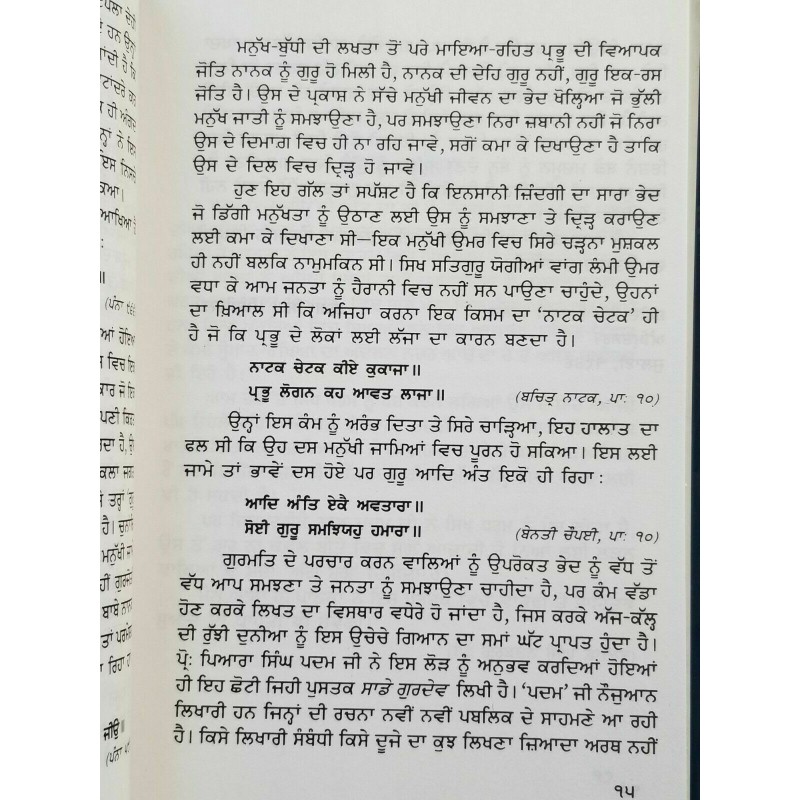 ਮਨੁੱਖ-ਬੁੱਧੀ ਦੀ ਲਖਤਾ ਤੋਂ ਪਰੇ ਮਾਇਆ-ਰਹਿਤ ਪ੍ਰਭੂ ਦੀ ਵਿਆਪਕ
ਜੋਤਿ ਨਾਨਕ ਨੂੰ ਗੁਰੂ ਹੋ ਮਿਲੀ ਹੈ, ਨਾਨਕ ਦੀ ਦੇਹਿ ਗੁਰੂ ਨਹੀਂ, ਗੁਰੂ ਇਕ-ਰਸ
ਜੋਤਿ ਹੈ। ਉਸ ਦੇ ਪ੍ਰਕਾਸ਼ ਨੇ ਸੱਚੇ ਮਨੁੱਖੀ ਜੀਵਨ ਦਾ ਭੇਦ ਖੋਲ੍ਹਿਆ ਜੋ ਭੁੱਲੀ
ਮਨੁੱਖ ਜਾਤੀ ਨੂੰ ਸਮਝਾਉਣਾ ਹੈ, ਪਰ ਸਮਝਾਉਣਾ ਨਿਰਾ ਜ਼ਬਾਨੀ ਨਹੀਂ ਜੋ ਨਿਰਾ
ਉਸ ਦੇ ਦਿਮਾਗ਼ ਵਿਚ ਹੀ ਨਾ ਰਹਿ ਜਾਵੇ, ਸਗੋਂ ਕਮਾ ਕੇ ਦਿਖਾਉਣਾ ਹੈ ਤਾਕਿ
ਉਸ ਦੇ ਦਿਲ ਵਿਚ ਦ੍ਰਿੜ੍ਹ ਹੋ ਜਾਵੇ।
ਹੁਣ ਇਹ ਗੱਲ ਤਾਂ ਸਪੱਸ਼ਟ ਹੈ ਕਿ ਇਨਸਾਨੀ ਜ਼ਿੰਦਗੀ ਦਾ ਸਾਰਾ ਭੇਦ
ਜੋ ਡਿੱਗੀ ਮਨੁੱਖਤਾ ਨੂੰ ਉਠਾਣ ਲਈ ਉਸ ਨੂੰ ਸਮਝਾਣਾ ਤੇ ਦ੍ਰਿੜ੍ਹ ਕਰਾਉਣ
ਲਈ ਕਮਾ ਕੇ ਦਿਖਾਣਾ ਸੀ—ਇਕ ਮਨੁੱਖੀ ਉਮਰ ਵਿਚ ਸਿਰੇ ਚੜ੍ਹਨਾ ਮੁਸ਼ਕਲ
ਹੀ ਨਹੀਂ ਬਲਕਿ ਨਾਮੁਮਕਿਨ ਸੀ। ਸਿਖ ਸਤਿਗੁਰੂ ਯੋਗੀਆਂ ਵਾਂਗ ਲੰਮੀ ਉਮਰ
ਵਧਾ ਕੇ ਆਮ ਜਨਤਾ ਨੂੰ ਹੈਰਾਨੀ ਵਿਚ ਨਹੀਂ ਸਨ ਪਾਉਣਾ ਚਾਹੁੰਦੇ, ਉਹਨਾਂ
ਦਾ ਖ਼ਿਆਲ ਸੀ ਕਿ ਅਜਿਹਾ ਕਰਨਾ ਇਕ ਕਿਸਮ ਦਾ ‘ਨਾਟਕ ਚੇਟਕ’ ਹੀ
ਹੈ ਜੋ ਕਿ ਪ੍ਰਭੂ ਦੇ ਲੋਕਾਂ ਲਈ ਲੱਜਾ ਦਾ ਕਾਰਨ ਬਣਦਾ ਹੈ।
ਨਾਟਕ ਚੇਟਕ ਕੀਏ ਕੁਕਾਜਾ॥
ਪ੍ਰਭੂ ਲੋਗਨ ਕਹ ਆਵਤ ਲਾਜਾ॥ (ਬਚਿਤ੍ਰ ਨਾਟਕ, ਪਾ: ੧੦)
ਉਨ੍ਹਾਂ ਇਸ ਕੰਮ ਨੂੰ ਅਰੰਭ ਦਿਤਾ ਤੇ ਸਿਰੇ ਚਾੜ੍ਹਿਆ, ਇਹ ਹਾਲਾਤ ਦਾ
ਫਲ ਸੀ ਕਿ ਉਹ ਦਸ ਮਨੁੱਖੀ ਜਾਮਿਆਂ ਵਿਚ ਪੂਰਨ ਹੋ ਸਕਿਆ। ਇਸ ਲਈ
ਜਾਮੇ ਤਾਂ ਭਾਵੇਂ ਦਸ ਹੋਏ ਪਰ ਗੁਰੂ ਆਦਿ ਅੰਤ ਇਕੋ ਹੀ ਰਿਹਾ:
ਆਦਿ ਅੰਤਿ ਏਕੈ ਅਵਤਾਰਾ॥
ਸੋਈ ਗੁਰੂ ਸਮਝਿਯਹੁ ਹਮਾਰਾ॥ (ਬੇਨਤੀ ਚੌਪਈ, ਪਾ: ੧੦)
ਗੁਰਮਤਿ ਦੇ ਪਰਚਾਰ ਕਰਨ ਵਾਲਿਆਂ ਨੂੰ ਉਪਰੋਕਤ ਭੇਦ ਨੂੰ ਵੱਧ ਤੋਂ
ਵੱਧ ਆਪ ਸਮਝਣਾ ਤੇ ਜਨਤਾ ਨੂੰ ਸਮਝਾਉਣਾ ਚਾਹੀਦਾ ਹੈ, ਪਰ ਕੰਮ ਵੱਡਾ
ਹੋਣ ਕਰਕੇ ਲਿਖਤ ਦਾ ਵਿਸਥਾਰ ਵਧੇਰੇ ਹੋ ਜਾਂਦਾ ਹੈ, ਜਿਸ ਕਰਕੇ ਅੱਜ-ਕੱਲ੍ਹ
ਦੀ ਰੁੱਝੀ ਦੁਨੀਆ ਨੂੰ ਇਸ ਉਚੇਚੇ ਗਿਆਨ ਦਾ ਸਮਾਂ ਘੱਟ ਪ੍ਰਾਪਤ ਹੁੰਦਾ ਹੈ।
ਪ੍ਰੋ: ਪਿਆਰਾ ਸਿੰਘ ਪਦਮ ਜੀ ਨੇ ਇਸ ਲੋੜ ਨੂੰ ਅਨੁਭਵ ਕਰਦਿਆਂ ਹੋਇਆਂ
ਹੀ ਇਹ ਛੋਟੀ ਜਿਹੀ ਪੁਸਤਕ ਸਾਡੇ ਗੁਰਦੇਵ ਲਿਖੀ ਹੈ। ‘ਪਦਮ’ ਜੀ ਨੌਜੁਆਨ
ਲਿਖਾਰੀ ਹਨ ਜਿਨ੍ਹਾਂ ਦੀ ਰਚਨਾ ਨਵੀਂ ਨਵੀਂ ਪਬਲਿਕ ਦੇ ਸਾਹਮਣੇ ਆ ਰਹੀ
ਹੈ। ਕਿਸੇ ਲਿਖਾਰੀ ਸੰਬੰਧੀ ਕਿਸੇ ਦੂਜੇ ਦਾ ਕੁਝ ਲਿਖਣਾ ਜ਼ਿਆਦਾ ਅਰਥ ਨਹੀਂ
੧੫